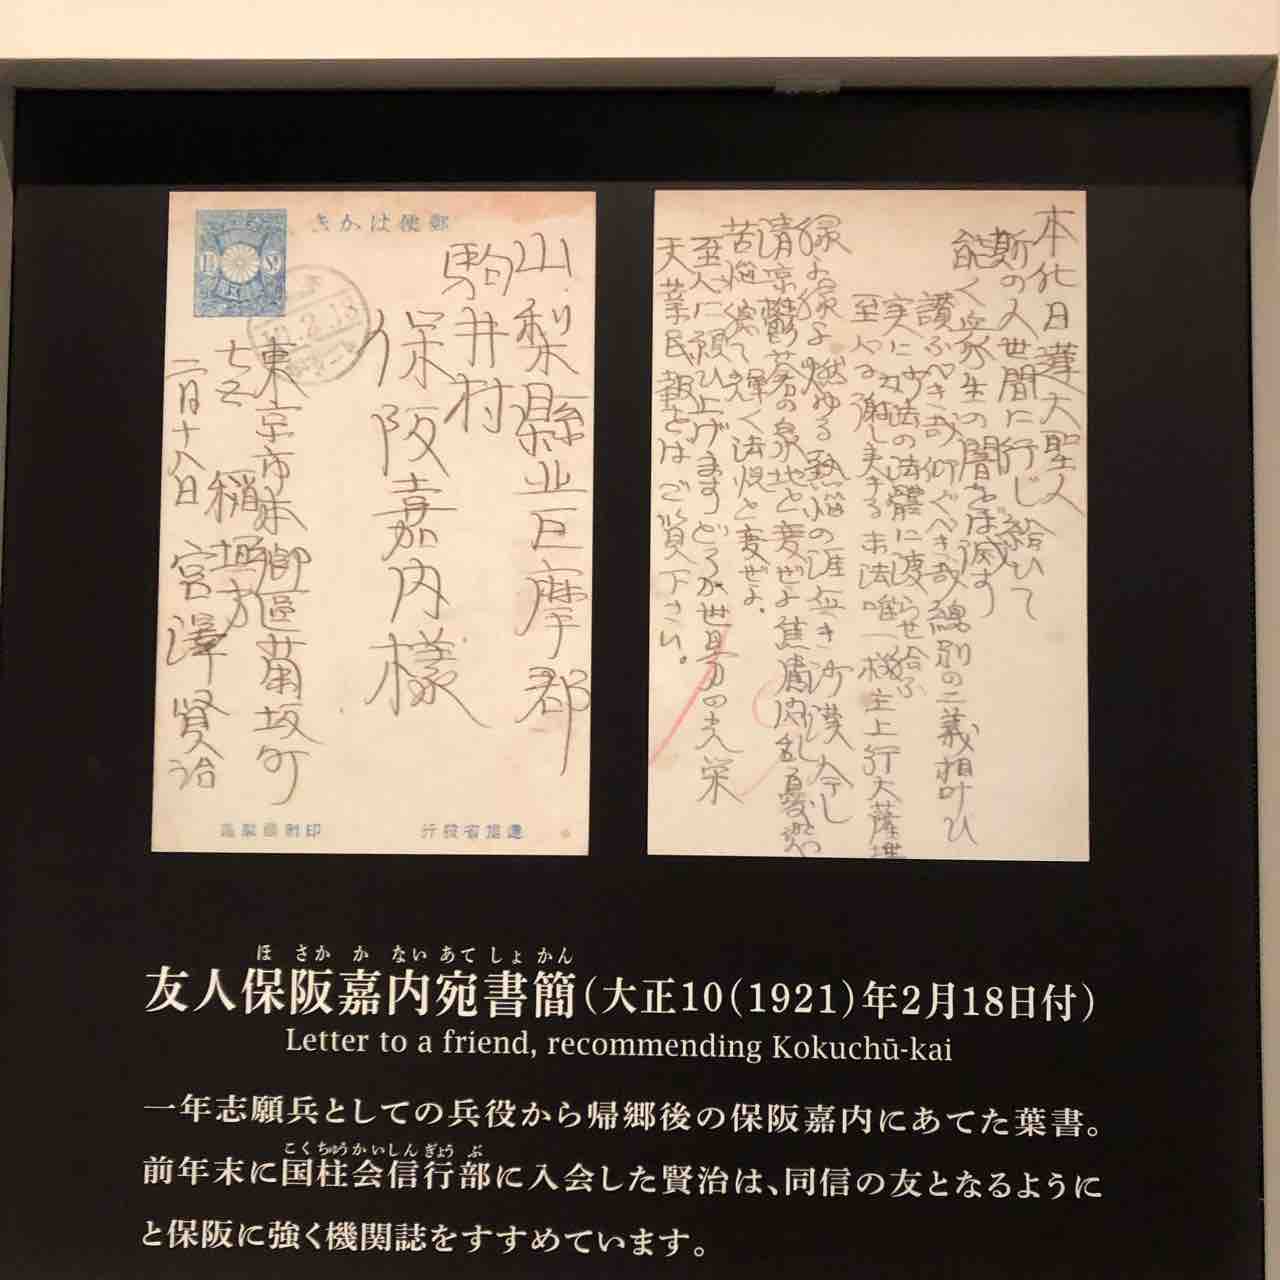 郵便はかき
山梨縣北巨摩郡
駒井村
保阪嘉内様
東京市本郷區菊坂町
七五 稲垣方
二月十八日 宮澤賢治
10.2.18
逓信省發行
印刷局製造
本化日蓮大聖人
斯の人世間に行じ給ひて
能く衆生の闇を滅す
讃ふべき哉仰ぐべき哉 総別の二義相叶ひ
実に妙法の法體に渡らせ給ふ
至心に謝し奉る末法唯一様主上行大薩埵
縁よ縁よ燃ゆる熱悩の涯無き沙漠今し
清京鬱蒼の泉地と変ぜよ焦慮内乱憂悲
苦悩湾て輝く法悦と変ぜよ。
至心に願ひ上げますどうか世界の光栄
天業民報とはご覧下さい。
ほさかかないあてしょかん
友人保阪嘉内宛書簡(大正10(1921)年2月18日付)
Letter to a friend, recommending Kokuchū-kai
一年志願兵としての兵役から帰郷後の保阪嘉内にあてた葉書。
こくちゅうかいしんぎょうぶ
前年末に国柱会信行部に入会した賢治は、同信の友となるように
と保阪に強く機関誌をすすめています。